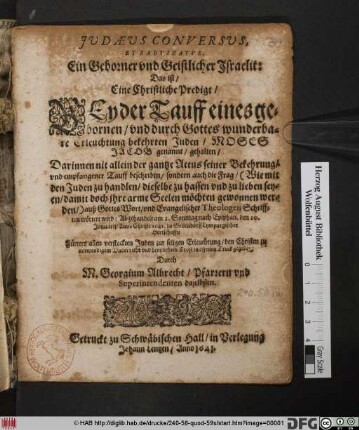 JUDÆUS CONVERSUS,
ET BAPTIZATUS,
Ein Geborner vnd Geistlicher Israelit:
Das ist /
Eine Christliche Predigt /
Bey der Tauff eines ge-
bornen / vnd durch Gottes wunderba-
re Erleuchtung bekehrten Juden / MOSES
JACOB genannt / gehalten /
Darinnen nit allein der gantze Actus seiner Bekehrung /
vnd empfangener Tauff bescheiden / sondern auch die Frag / (Wie mit
den Juden zu handlen / dieselbe zu hassen vnd zu lieben sey-
en / damit doch jhre arme Seelen möchten gewonnen wer-
den / auß Gottes Wort / vnd Evangelischer Theologen Schriff-
ten erörtert wird
Durch
M. Georgium Albrecht / Pfarrern vnd
Superintendenten daselbsten.
Getruckt zu Schwäbischen Hall / in Verlegung
Johann Lentzen / Anno 1641.
Herzog August Bibliothek
Wolfenbüttel
© HAB http://diglib.hab.de/drucke/240-58-quod-59s/start.htm?image=00001
DFG